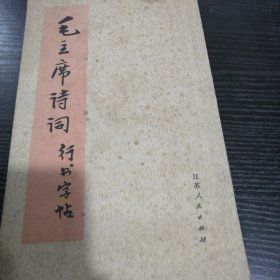 毛主席诗词行书字帖
江苏人民出版社